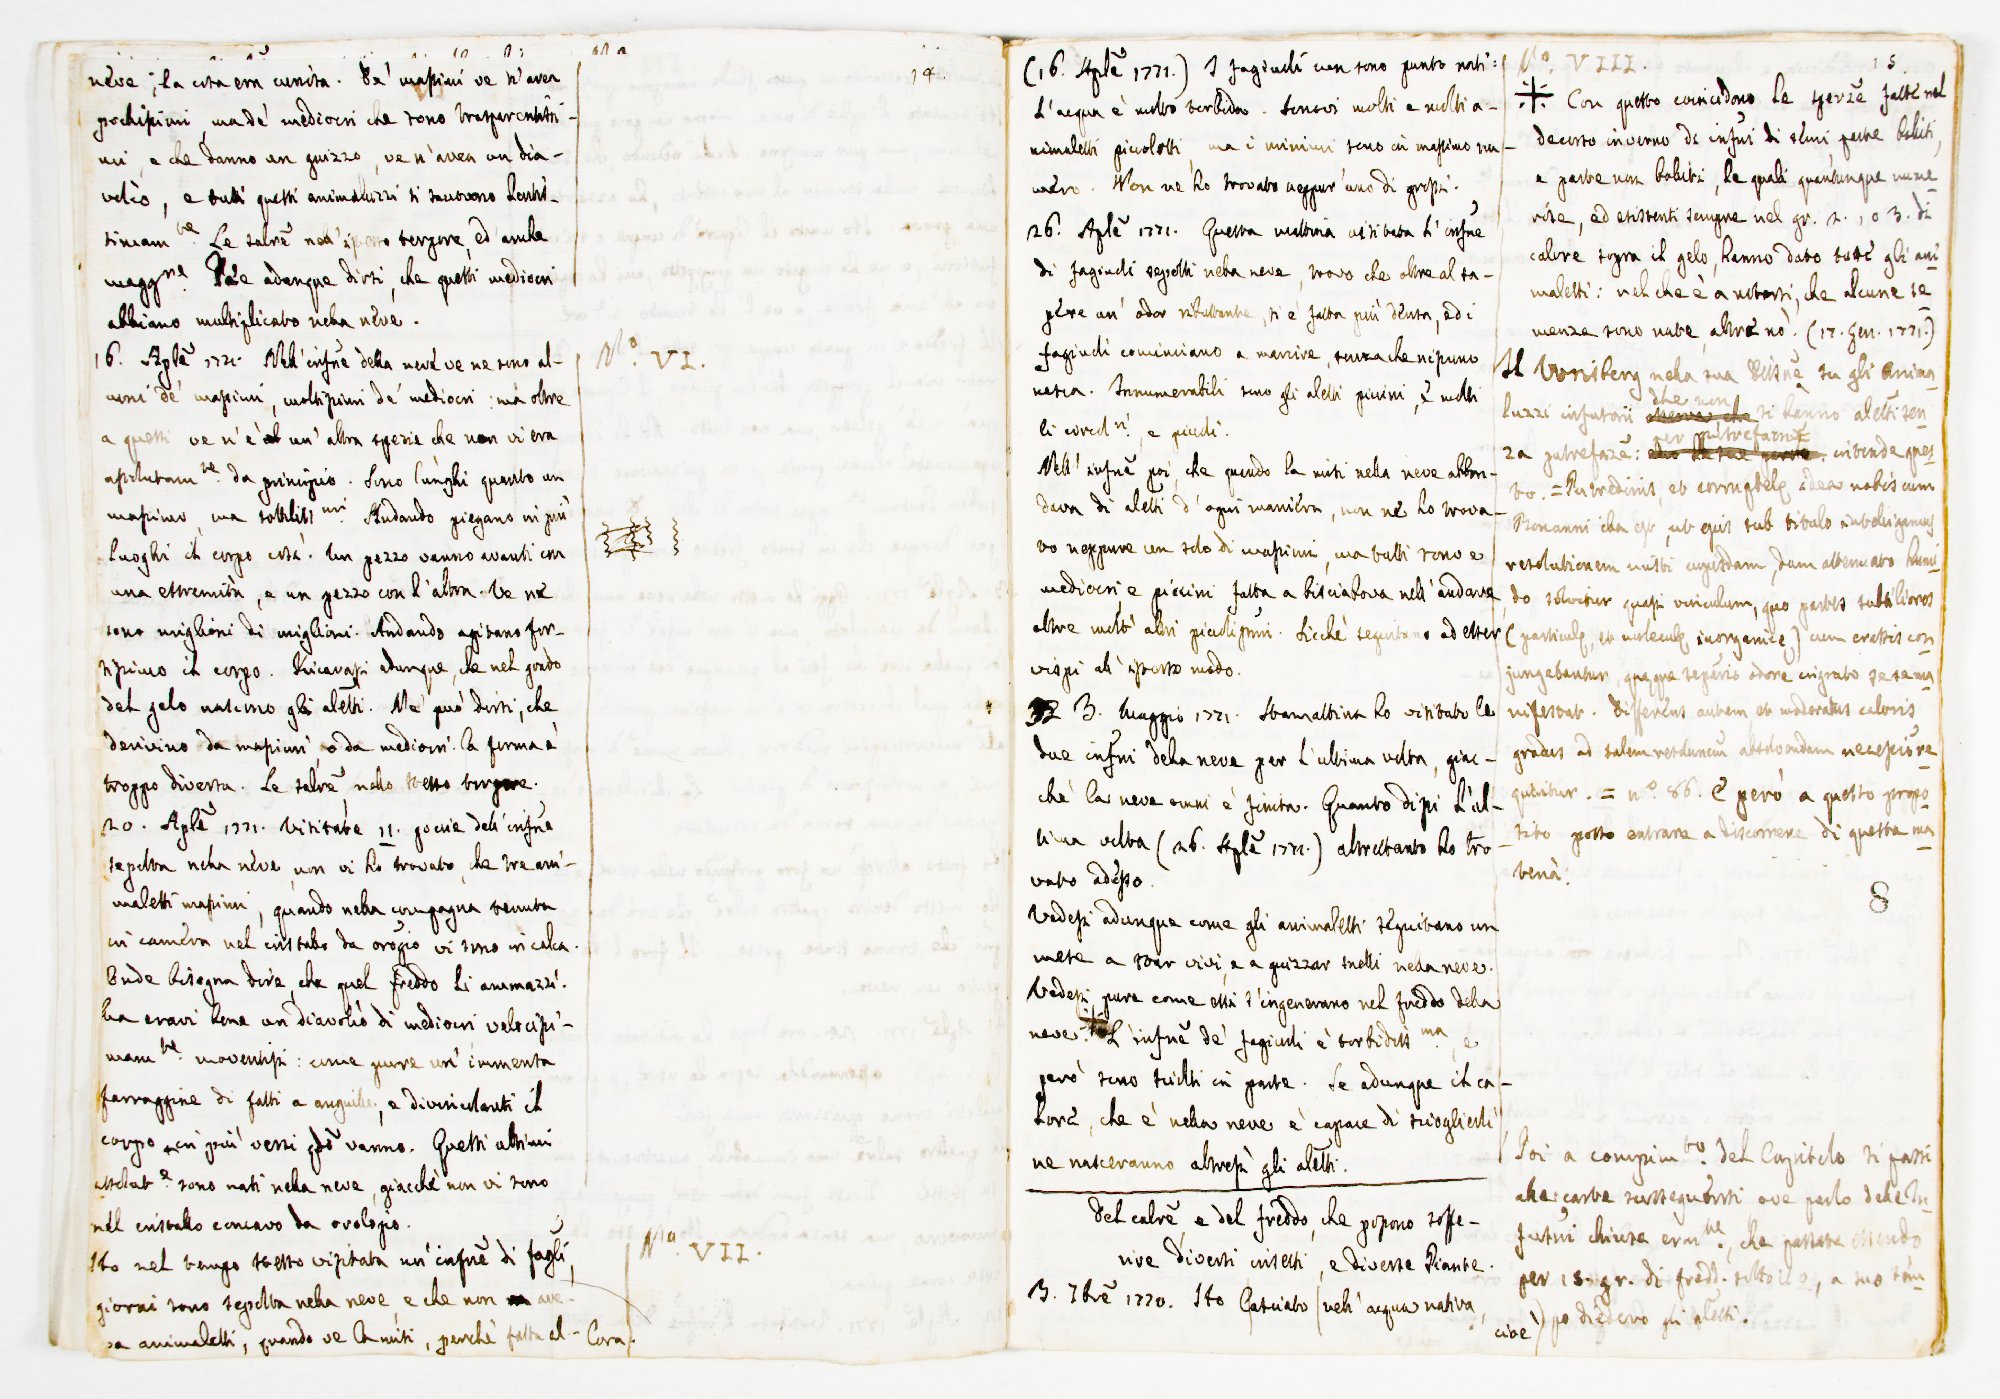 14.
neve; la cosa era curiosa. De' massimi ve n'avea
pochissimi, ma de' mediocri che sono trasparentissi-
mi, e che danno un guizzo, ve n'avea un dia-
volìo, e tutti questi animaluzzi si muovono lentis-
simam.te Le salrē nell'istesso tergore, ed anche
magg.re Dee adunque dirsi, che questi mediocri
abbiano multiplicato nella neve.
16. Aplē 1771. Nell'infnē della neve ve ne sono al-
cuni de' massimi, moltissimi de' mediocri: ma oltre
a questi ve n'è un'altra spezie che non vi era
assolutam.te da principio. Sono lunghi quanto un
massimo, ma sottiliss.mi Andando piegano in più
luoghi il corpo così. Un pezzo vanno avanti con
una estremità, e un pezzo con l'altra. Ve ne
sono miglioni di miglioni. Andando agitano for-
tissimo il corpo. Ricavasi adunque, che nel grado
del gelo nascono gli aletti. Nè può dirsi, che
derivino da massimi, o da mediocri. La forma è
troppo diversa. Le salrē, nello stesso tergore.
20. Aplē 1771. Visitate 11. goccie dell'infnē
sepolta nella neve, non vi ho trovato, che tre ani-
maletti massimi, quando nella compagna tenuta
in camera nel cristallo da orogio vi sono in calca.
Onde bisogna dire, che quel freddo li ammazzi.
Ma eravi bene un diavolìo di mediocri velocissi-
mam.te moventisi: come pure un'immensa
farraggine di fatti a anguille, e divincolanti il
corpo in più versi, se vanno. Questi ultimi
assolut.e sono nati nella neve, giacchè non vi sono
nel cristallo concavo da orologio.
Ho nel tempo stesso visitata un'infnē di fagli,
giorni sono sepolta nella neve, e che non ave-
va animaletti, quando ve la misi, perchè fatta al-
lora.
N.o VI.
N.o VII.
(16. Aplē 1771.) I fagiuoli non sono punto nati:
L'acqua è molto torbida. Sonovi molti e molti a-
nimaletti piccoletti, ma i minimi sono in massimo nu-
mero. Non ne ho trovato neppur'uno di grossi.
26. Aplē 1771. Questa mattina visitata l'infnē
di fagiuoli sepolti nella neve, trovo che oltre al sa-
pere un'odor ributtante, si è fatta più densa, ed i
fagiuoli cominciano a marcire, senza che nissuno
nasca. Innumerabili sono gli aletti piccini, e molti
li, e piccoli.
Nell'infnē poi, che quando la misi nella neve abbon-
dava di aletti d'ogni maniera, non ne ho trova-
to neppure un solo di massimi, ma tutti sono e
mediocri, e piccini fatta a bisciatova nell'andare,
oltre molt'altri piccolissimi. Sicchè seguitano ad esser
vispi allo stesso modo.
3. Maggio 1771. Stamattina ho visitato le
due infnī della neve per l'ultima volta, giac-
chè la neve omai è finita. Quanto dissi l'ul-
tima volta (26. Aplē 1771.) altrettanto ho tro-
vato adesso.
Vedesi adunque come gli animaletti seguitano un
mese a star vivi, e a guizzar snelli nella neve.
Vedesi pure come essi s'ingenerano nel freddo della
neve. L'infnē de' fagiuoli è torbidiss.ma, e
però sono sciolti in parte. Se adunque il ca-
lore, che è nella neve è capace di scioglierli
ne nasceranno altresì gli aletti.
Del calrē e del freddo, che possono soffe-
rire diversi insetti, e diverse Piante.
3. 7brē 1770. Ho lasciato (nell'acqua nativa,
cioè)
N.o VIII.
15.
Con questo coincidono le sperzē fatte nel
decorso inverno di infnī di semi parte bolliti,
e parte non bolliti, le quali quantunque nume-
rose, ed esistenti sempre nel gr. 2., o 3. di
calore sopra il gelo, hanno dato tutte gli ani-
maletti: nel che è a notarsi, che alcune se-
menze sono nate, altre nò. (17. Gen. 1771.)
Il Vrisberg nella sua Dissnē su gli anima-
luzzi infusorii che non si hanno aletti sen-
za putrefazē: per putrefaznē intende ques-
to. = Putredinis, et corruptelę idea nobis cum
Bonanni illa est, ut ejus sub titulo intelligamus
resolutionem misti cujusdam, dum attenuato humi-
do solvitur quasi vinculum, quo partes subtiliores
(particulę, et moleculę inorganicę) cum crassis con-
jungebantur, quęque separio odore ingrato sese ma-
nifestat. Differens autem et moderatus caloris
gradus ad talem resolutionem absolvendam necessario re-
quiritur. = n.o 86. E però a questo propo-
sito posso entrare a discorrere di questa ma-
teria.
8
Poi a compim.to del Capitolo si passi
alle carte susseguenti ove parlo delle In-
fusnī chiuse erm.te, che passate essendo
per 15. gr. di fredd. sotto il 0, a suo tem-
po diedero gli aletti.